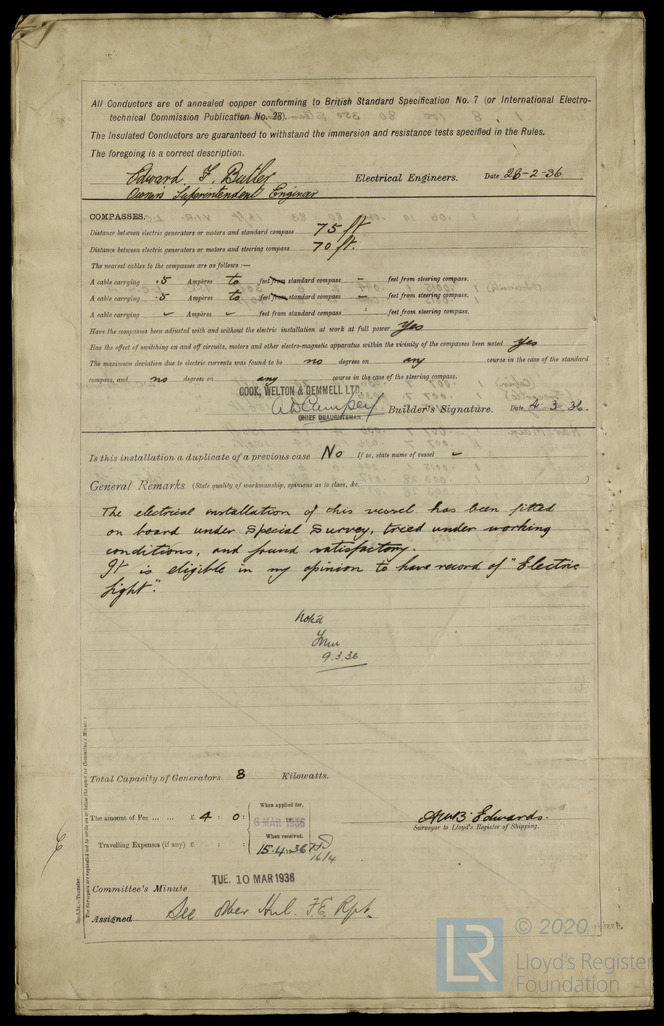 All Conductors are of annealed copper conforming to British Standard Specification No. 7 (or International Electro-
technical Commission Publication No. 28).
The Insulated Conductors are guaranteed to withstand the immersion and resistance tests specified in the Rules.
The foregoing is a correct description.
Edward F. Butler Electrical Engineers. Date 28-2-36
Owners Superentendent Engineer
COMPASSES.
Distance between electric generators or motors and standard compass 75 ft
Distance between electric generators or motors and steering compass 70 ft.
The nearest cables to the compasses are as follows:—
A cable carrying .5 Ampères to feet from standard compass – feet from steering compass.
A cable carrying .5 Ampères to feet from standard compass – feet from steering compass.
A cable carrying Ampères feet from standard compass feet from steering compass.
Have the compasses been adjusted with and without the electric installation at work at full power Yes
Has the effect of switching on and off circuits, motors and other electro-magnetic apparatus within the vicinity of the compasses been noted Yes
The maximum deviation due to electric currents was found to be no degrees on any course in the case of the standard
compass, and no degrees on any course in the case of the steering compass.
COOK, WELTON & GEMMELL LTD.
Builder's Signature. Date 4 3 36.
CHIEF DRAUGHTSMAN.
Is this installation a duplicate of a previous case No If so, state name of vessel
General Remarks (State quality of workmanship, opinions as to class, &c.
The electrical installation of this vessel has been fitted
on board under Special Survey, tried under working
conditions, and found satisfactory.
It is eligible in my opinion to have record of "Electric
light".
Noted
9.3.36
Total Capacity of Generators 8 Kilowatts.
The amount of Fee ... ... £ 4 : 0 :
When applied for,
6 MAR 1936
When received.
Travelling Expenses (if any) £ : :
15.4.36
16/4
Edwards.
Surveyor to Lloyd's Register of Shipping.
TUE. 10 MAR 1936
Committee's Minute
Assigned See other Hul. F.E. Rpt.
© 2020
LR
Lloyd's Register
Foundation